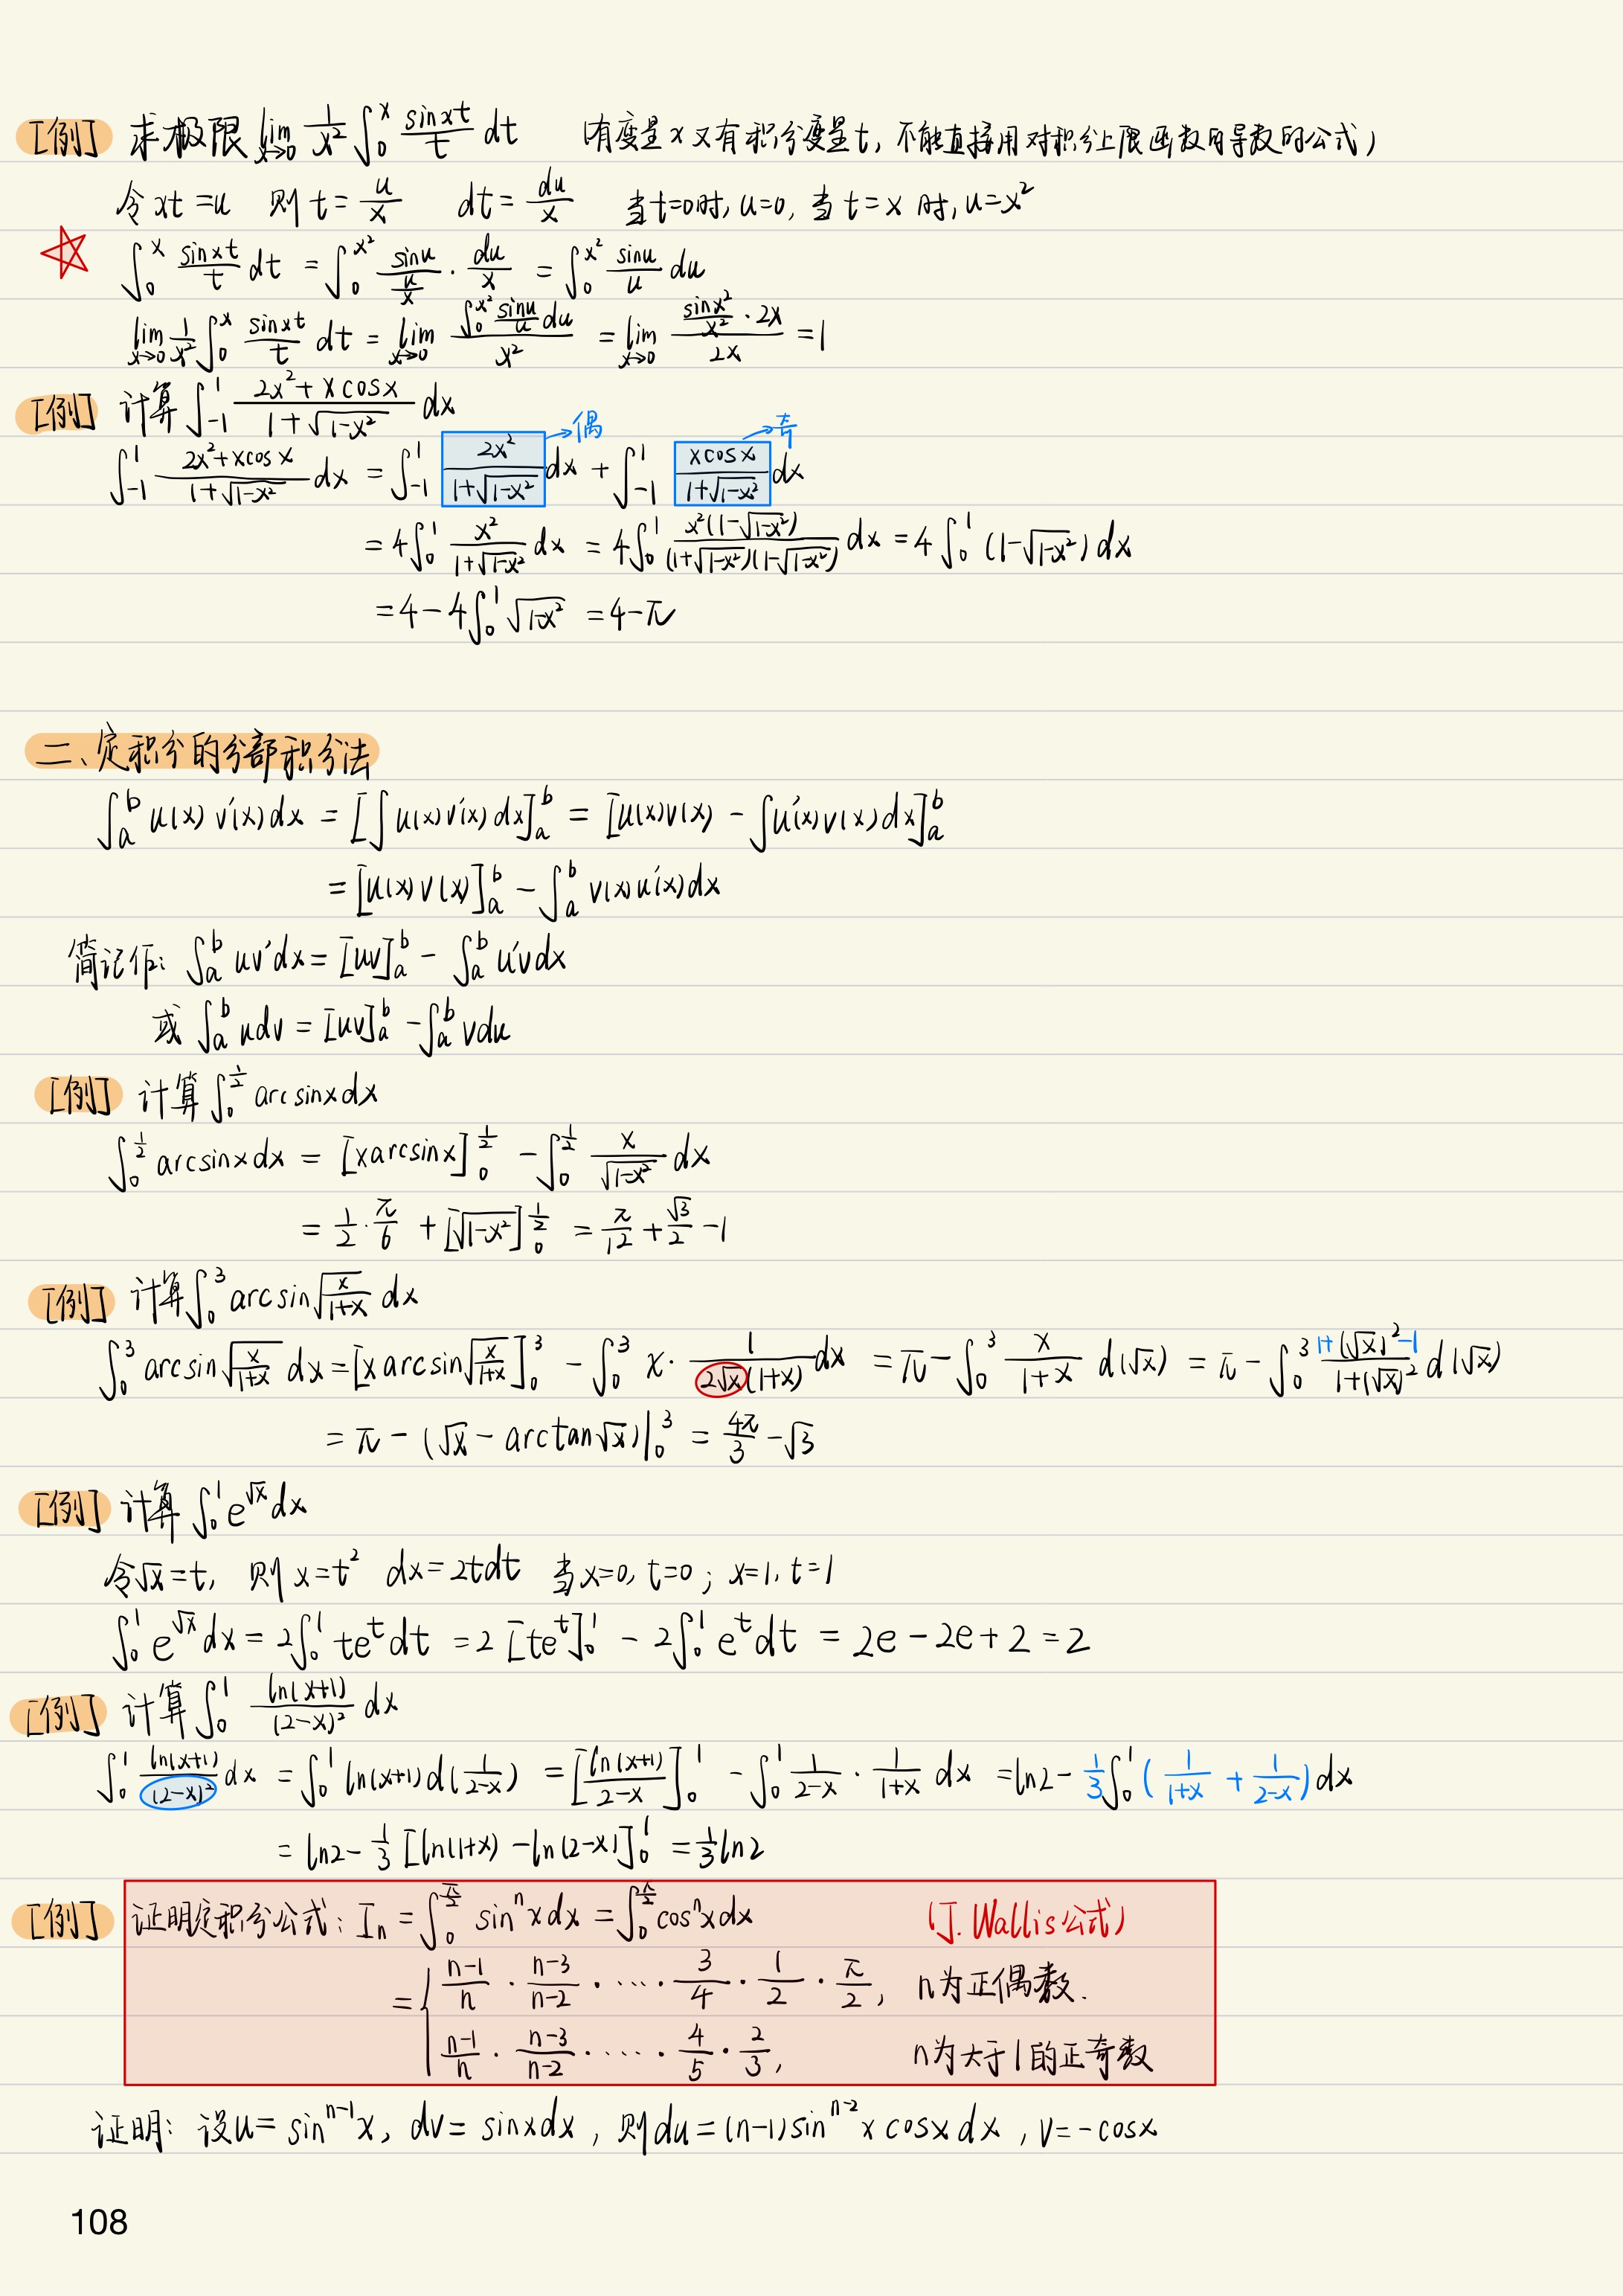 [例] 求极限 lim_{x→0} 1/x² ∫_0^x sinxt/t dt (有变量x又有积分变量t, 不能直接用对积分上限函数的导数的公式)
令 xt=u 则 t=u/x dt=du/x 当t=0时, u=0, 当 t=x 时, u=x²
☆ ∫_0^x sinxt/t dt = ∫_0^{x²} sinu/(u/x) · du/x = ∫_0^{x²} sinu/u du
lim_{x→0} 1/x² ∫_0^x sinxt/t dt = lim_{x→0} (∫_0^{x²} sinu/u du)/x² = lim_{x→0} (sinx²/x² · 2x)/2x = 1
[例] 计算 ∫_{-1}^1 (2x²+xcosx)/(1+√(1-x²)) dx
→偶 →奇
∫_{-1}^1 (2x²+xcosx)/(1+√(1-x²)) dx = ∫_{-1}^1 2x²/(1+√(1-x²)) dx + ∫_{-1}^1 xcosx/(1+√(1-x²)) dx
= 4∫_0^1 x²/(1+√(1-x²)) dx = 4∫_0^1 x²(1-√(1-x²))/((1+√(1-x²))(1-√(1-x²))) dx = 4∫_0^1 (1-√(1-x²)) dx
= 4-4∫_0^1 √(1-x²) = 4-π
二、定积分的分部积分法
∫_a^b u(x)v'(x)dx = [∫u(x)v'(x)dx]_a^b = [u(x)v(x) - ∫u'(x)v(x)dx]_a^b
= [u(x)v(x)]_a^b - ∫_a^b v(x)u'(x)dx
简记作: ∫_a^b uv'dx = [uv]_a^b - ∫_a^b u'vdx
或 ∫_a^b udv = [uv]_a^b - ∫_a^b vdu
[例] 计算 ∫_0^{1/2} arcsinxdx
∫_0^{1/2} arcsinxdx = [xarcsinx]_0^{1/2} - ∫_0^{1/2} x/√(1-x²) dx
= 1/2 · π/6 + [√(1-x²)]_0^{1/2} = π/12 + √3/2 - 1
[例] 计算 ∫_0^3 arcsin√(x/(1+x)) dx
∫_0^3 arcsin√(x/(1+x)) dx = [xarcsin√(x/(1+x))]_0^3 - ∫_0^3 x · 1/(2√x(1+x)) dx = π - ∫_0^3 x/(1+x) d(√x) = π - ∫_0^3 (1+(√x)²-1)/(1+(√x)²) d(√x)
= π - (√x - arctan√x)|_0^3 = 4π/3 - √3
[例] 计算 ∫_0^1 e^{√x}dx
令√x=t, 则 x=t² dx=2tdt 当x=0, t=0; x=1, t=1
∫_0^1 e^{√x}dx = 2∫_0^1 te^t dt = 2[te^t]_0^1 - 2∫_0^1 e^t dt = 2e-2e+2 = 2
[例] 计算 ∫_0^1 ln(x+1)/(2-x)² dx
∫_0^1 ln(x+1)/(2-x)² dx = ∫_0^1 ln(x+1)d(1/(2-x)) = [ln(x+1)/(2-x)]_0^1 - ∫_0^1 1/(2-x) · 1/(1+x) dx = ln2 - 1/3∫_0^1 (1/(1+x) + 1/(2-x))dx
= ln2 - 1/3[ln(1+x) - ln(2-x)]_0^1 = 1/3 ln2
[例] 证明定积分公式: I_n = ∫_0^{π/2} sin^n xdx = ∫_0^{π/2} cos^n xdx (J. Wallis公式)
= { (n-1)/n · (n-3)/(n-2) · ⋯ · 3/4 · 1/2 · π/2, n为正偶数.
(n-1)/n · (n-3)/(n-2) · ⋯ · 4/5 · 2/3, n为大于1的正奇数
证明: 设u=sin^{n-1}x, dv=sinxdx, 则du=(n-1)sin^{n-2}xcosxdx, v=-cosx
108